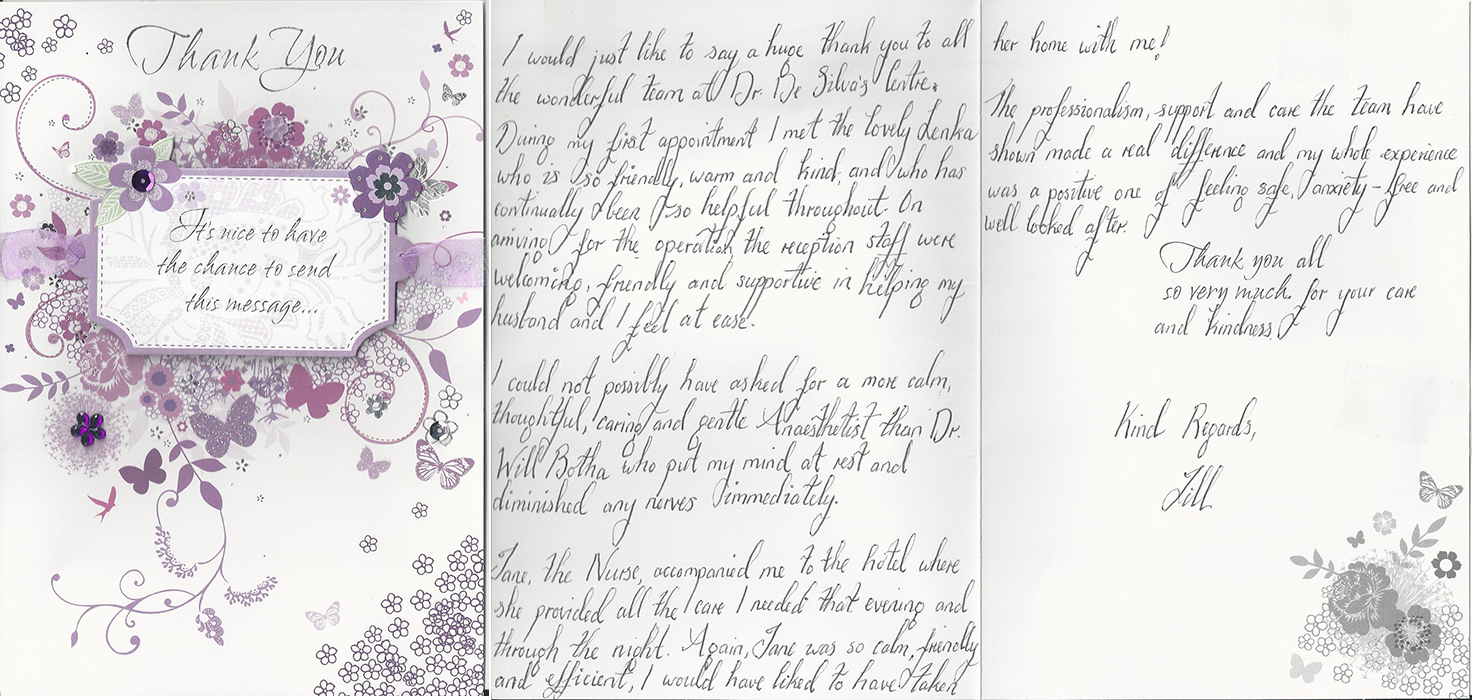 Thank You
It's nice to have
the chance to send
this message...
I would just like to say a huge thank you to all
the wonderful team at Dr. De Silva's Centre.
During my first appointment I met the lovely Lenka
who is so friendly, warm and kind, and who has
continually been so helpful throughout. On
arriving for the operation the reception staff were
welcoming, friendly and supportive in helping my
husband and I feel at ease.
I could not possibly have asked for a more calm,
thoughtful, caring and gentle Anaesthetist than Dr.
Will Botha who put my mind at rest and
diminished any nerves immediately.
Jane, the Nurse, accompanied me to the hotel where
she provided all the care I needed that evening and
through the night. Again, Jane was so calm, friendly
and efficient, I would have liked to have taken
her home with me!
The professionalism, support and care the team have
shown made a real difference and my whole experience
was a positive one of feeling safe, anxiety-free and
well looked after.
Thank you all
so very much for your care
and kindness.
Kind Regards,
Jill